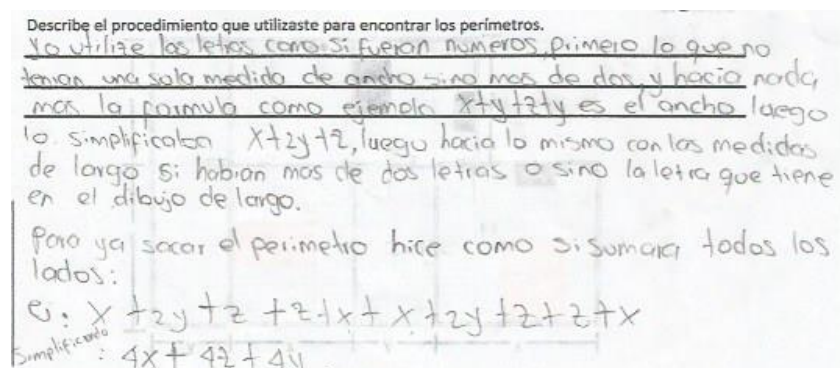 Describe el procedimiento que utilizaste para encontrar los perímetros.
Yo utilize las letras como si fueran numeros, primero lo que no
tenian una sola medida de ancho sino mas de dos, y hacia nada
mas la formula como ejemplo x+y+z+y es el ancho luego
lo simplificaba x+2y+z, luego hacia lo mismo con las medidas
de largo si habian mas de dos letras o sino la letra que tiene
en el dibujo de largo.
Para ya sacar el perimetro hice como si sumara todos los
lados:
e: x+2y+z+z+x+x+2y+z+z+x
Simplificado: 4x+4z+4y